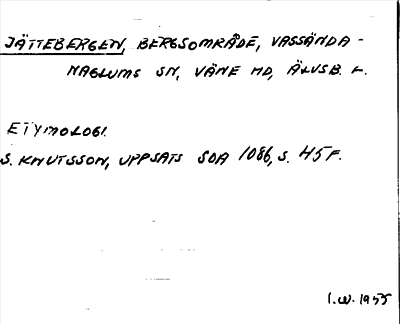 JÄTTEBERGEN, BERGSOMRÅDE, VASSÄNDA-
NAGLUMS SN, VÄNE HD, ÄLVSB. L.
ETYMOLOGI.
S. KNUTSSON, UPPSATS SOA 1086, S. 45 F.
I.W. 1955